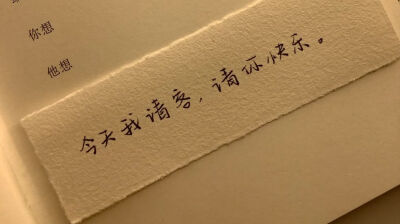 你想
他想
今天我请客，请你快乐。